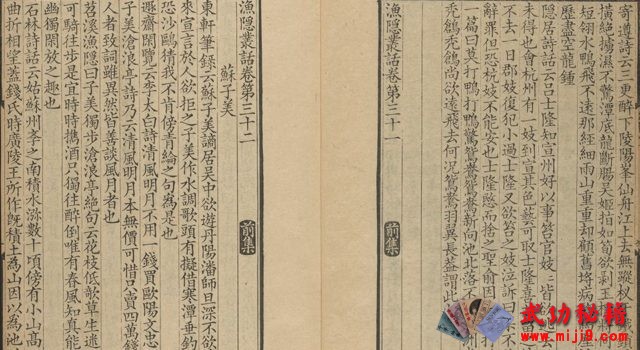 寄遵詩云三更醉下陵陽峯仙舟江上去無蹤
橫絕不驚潭底龍斷腸吳姬指如筍欲剥玉
短翎水鴨飛不遠那經細雨山重重却顧舊病
歷盡空龍鍾
隱居詩話云呂士隆知宣州好以事笞官妓妓皆欲去
未得也會杭州有一妓到宣其色藝可取士隆喜
不去一日郡妓復犯小過士隆又欲笞之妓泣訴曰某不
辭罪但恐杭妓不能安也士隆愍而捨之聖俞因
一篇曰莫打鴨打鴨驚鴛鴦鴛鴦新向池北落不
禿鶬禿鶬尚欲遠飛去何況鴛鴦羽翼長蓋謂此
漁隱叢話卷第三十一
前集
前集
漁隱叢話卷第三十二
蘇子美
東軒筆錄云蘇子美謫居吳中欲遊丹陽潘師旦深不欲
來宣言於人欲拒之子美作水調歌頭有擬借寒潭垂釣
恐沙鷗猜我不肯傍青綸之句為是也
遯齋閑覽云李太白詩清風明月不用一錢買歐陽文忠
子美滄浪亭詩乃云清風明月本無價可惜只賣四萬錢
人者致詞雖異然皆善談風月者也
苕溪漁隱曰子美獨步滄浪亭絕句云花枝低欹草生迷
可騎往步是宜時時攜酒只獨往醉倒唯有春風知真能
幽獨閑放之趣也
石林詩話云姑蘇州學之南積水瀰數十頃傍有小山高
曲折相望蓋錢氏時廣陵王所作既積土為山因以為池
武功秘籍
www.mij9.com